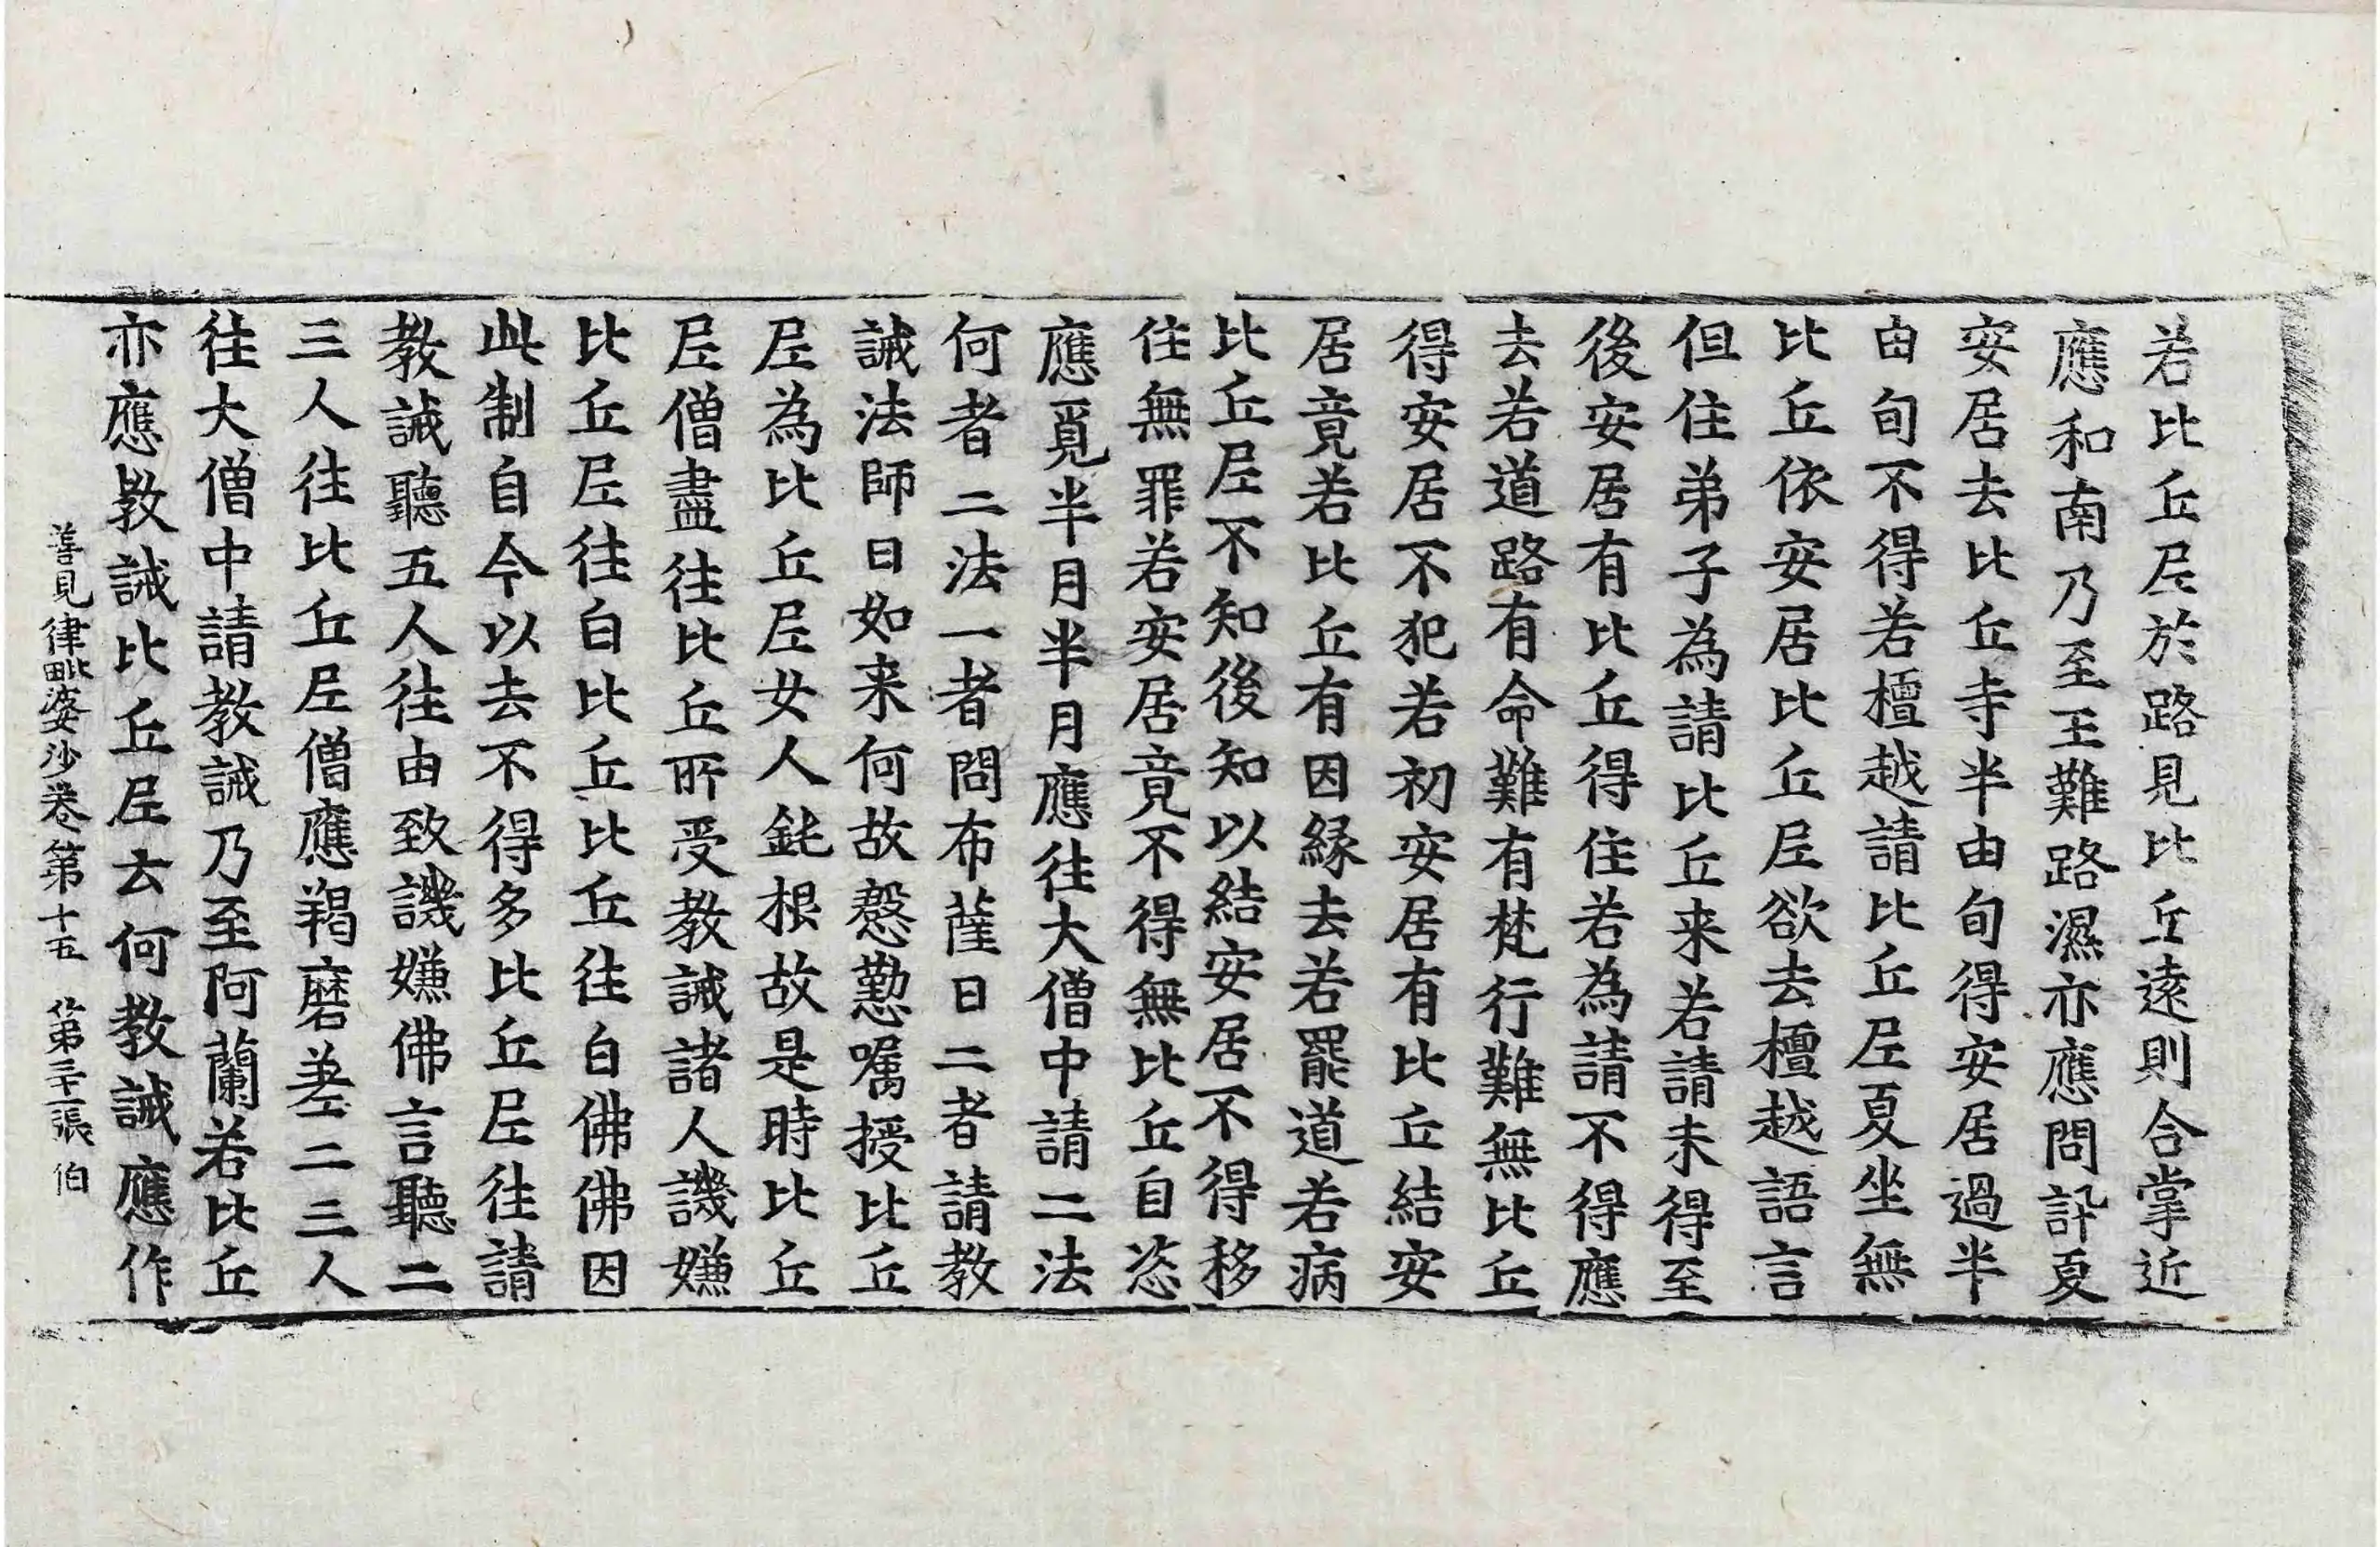 若比丘尼於路見比丘遠則合掌近
應和南乃至王難路濕亦應問訊夏
安居去比丘寺半由旬得安居過半
由旬不得若檀越請比丘尼夏坐無
比丘依安居比丘尼欲去檀越語言
但住弟子為請比丘来若請未得至
後安居有比丘得住若為請不得應
去若道路有命難有梵行難無比丘
得安居不犯若初安居有比丘結安
居竟若比丘有因緣去若罷道若病
比丘尼不知後知以結安居不得移
住無罪若安居竟不得無比丘自恣
應覓半月半月應往大僧中請二法
何者二法一者問布薩日二者請教
誡法師曰如来何故慇懃囑授比丘
尼為比丘尼女人鈍根故是時比丘
尼僧盡往比丘所受教誡諸人譏嫌
比丘尼往白比丘比丘往白佛佛因
此制自今以去不得多比丘尼往請
教誡聽五人往由致譏嫌佛言聽二
三人往比丘尼僧應羯磨差二三人
往大僧中請教誡乃至阿蘭若比丘
亦應教誡比丘尼云何教誡應作
善見律毗婆沙卷第十五 第二十二張 伯